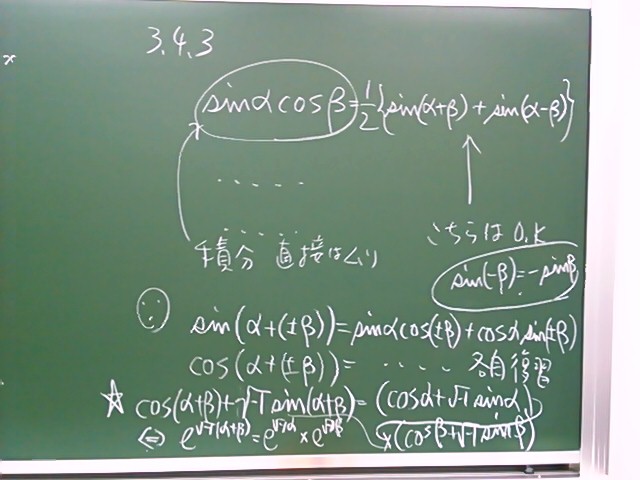 3.4.3
sinαcosβ=1/2{sin(α+β)+sin(α-β)}
......
こちらはO.K
積分 直接はムリ
sin(-β)=-sinβ
∵ sin(α+(±β))=sinαcos(±β)+cosαsin(±β)
cos(α+(±β))= ..... 各自復習
☆ cos(α+β)+√-1 sin(α+β)=(cosα+√-1 sinα)
×(cosβ+√-1 sinβ)
⇔ e^{√-1(α+β)}=e^{√-1α}×e^{√-1β}